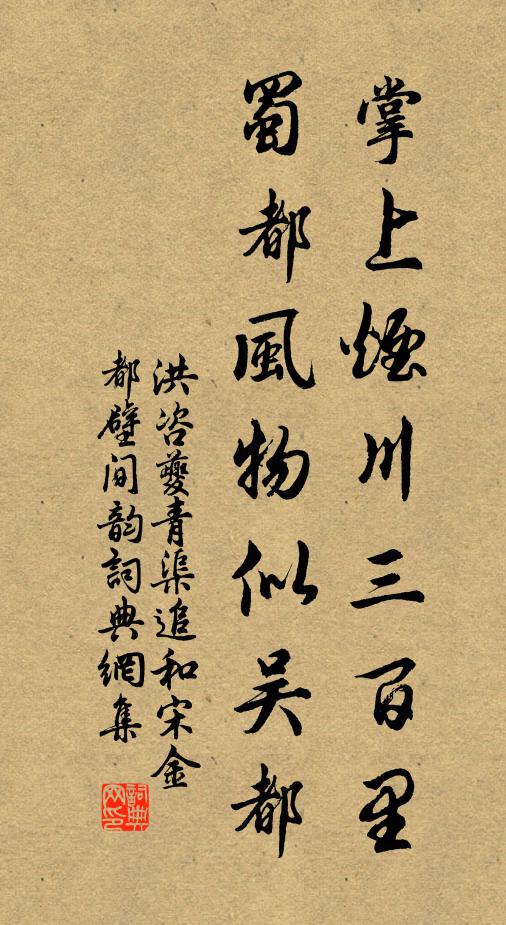 掌上煙川三百里
蜀都風物似吴都
洪咨夔青渠追和宋金
都壁间韵詞典網集
詞典网印